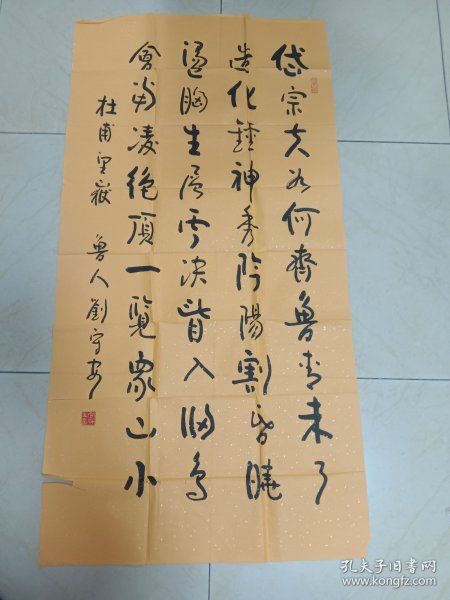 岱宗夫如何齊魯青未了
造化鍾神秀陰陽割昏曉
盪胸生層雲決眥入歸鳥
會當凌絕頂一覽眾山小
杜甫望嶽 魯人劉守安
孔夫子旧书网
www.kongfz.com